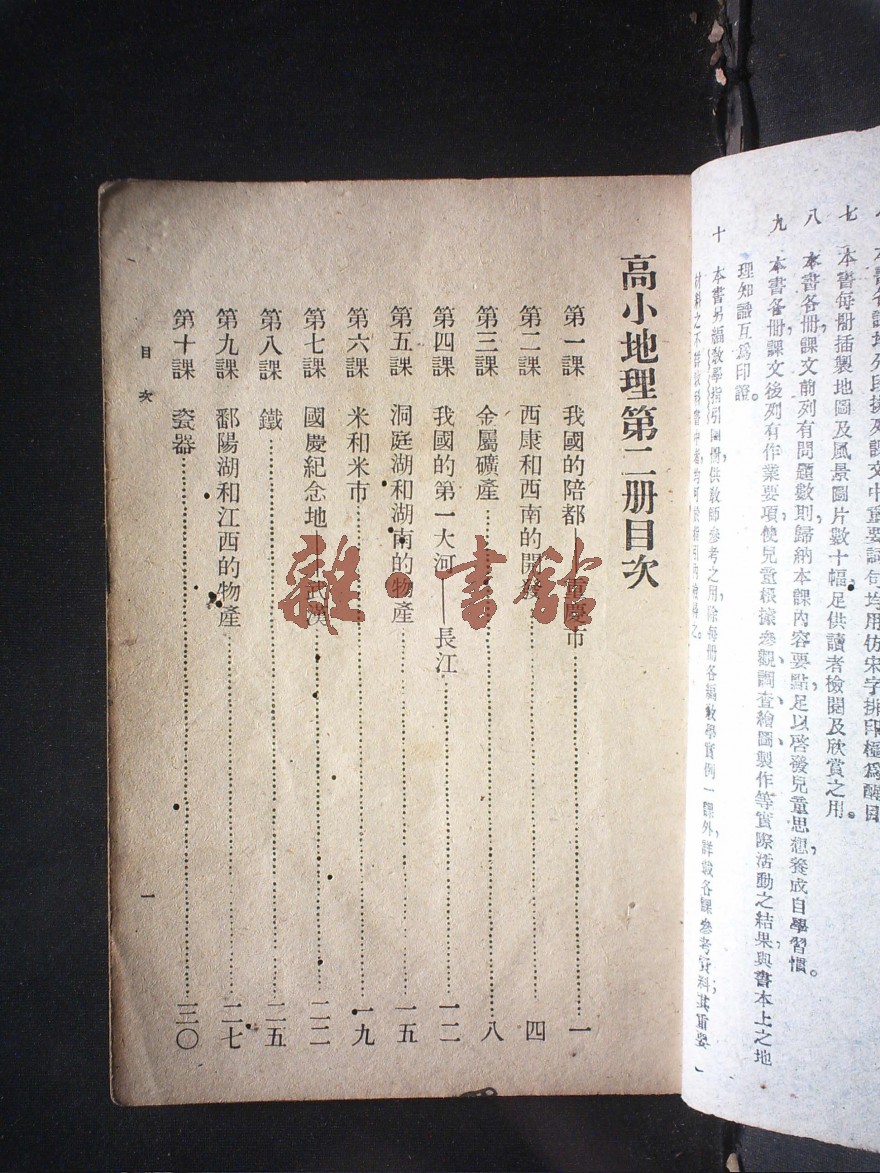 七　本書每冊插製地圖及風景圖片數十幅足供讀者檢閱及欣賞之用。
八　本書各冊課文前列有問題數則歸納本課內容要點足以啓發兒童思想養成自學習慣。
九　本書各冊課文後列有作業要項使兒童根據參觀、調查、繪圖、製作等實際活動之結果與書本上之地
理知識互爲印證。
十　本書另編教學指引四冊，供教師參考之用，除每冊各編教學實例一課外，詳載各課參考資料，其重要
高小地理第二册目次
第一課　我國的陪都——重慶市　一
第二課　西康和西南的開發　四
第三課　金屬礦產　八
第四課　我國的第一大河——長江　一二
第五課　洞庭湖和湖南的物產　一五
第六課　米和米市　一九
第七課　國慶紀念地——武漢　二二
第八課　鐵　二五
第九課　鄱陽湖和江西的物產　二七
第十課　瓷器　三〇
目次　一
雜·書館